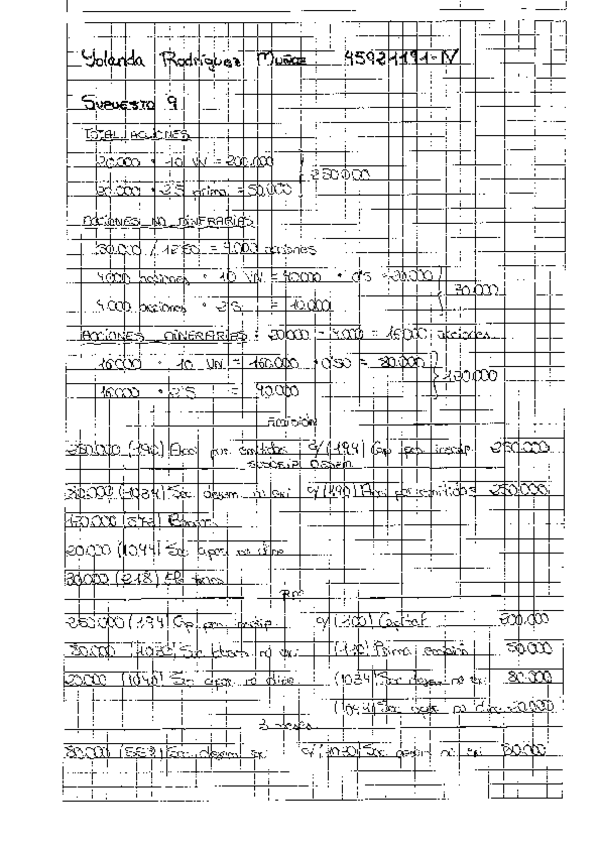 Yolanda Rodríguez Muñoz 45921191-N
SUPUESTO 9
TOTAL ACCIONES
20.000 · 10 VN = 200.000
20.000 · 2'5 prima = 50.000 } 250.000
ACCIONES NO DINERARIAS
50.000 / 12'50 = 4.000 acciones
4.000 acciones · 10 VN = 40.000 · 0'5 = 20.000
4.000 acciones · 2'5 = 10.000 } 30.000
ACCIONES DINERARIAS: 20.000 - 4.000 = 16.000 acciones
16.000 · 10 VN = 160.000 · 0'50 = 80.000
16.000 · 2'5 = 40.000 } 120.000
Emisión
250.000 (190) Acci por emitidas a/(194) Cap pen inscrip 250.000
SUSCRIP DESEM
80.000 (1034) Soc desem no exi a/(190) Acci por emitidas 250.000
120.000 (572) Bancos
20.000 (1044) Soc apor no dine
30.000 (218) El trans
RM
250.000 (194) Cap pen inscrip a/(100) Capital 200.000
80.000 (1030) Soc desem no exi (110) Prima emisión 50.000
20.000 (1040) Soc apor no dine (1034) Soc desem no exi 80.000
(1044) Soc apor no dine 20.000
3 meses
80.000 (558) Soc desem exi a/(1030) Soc desem no exi 80.000